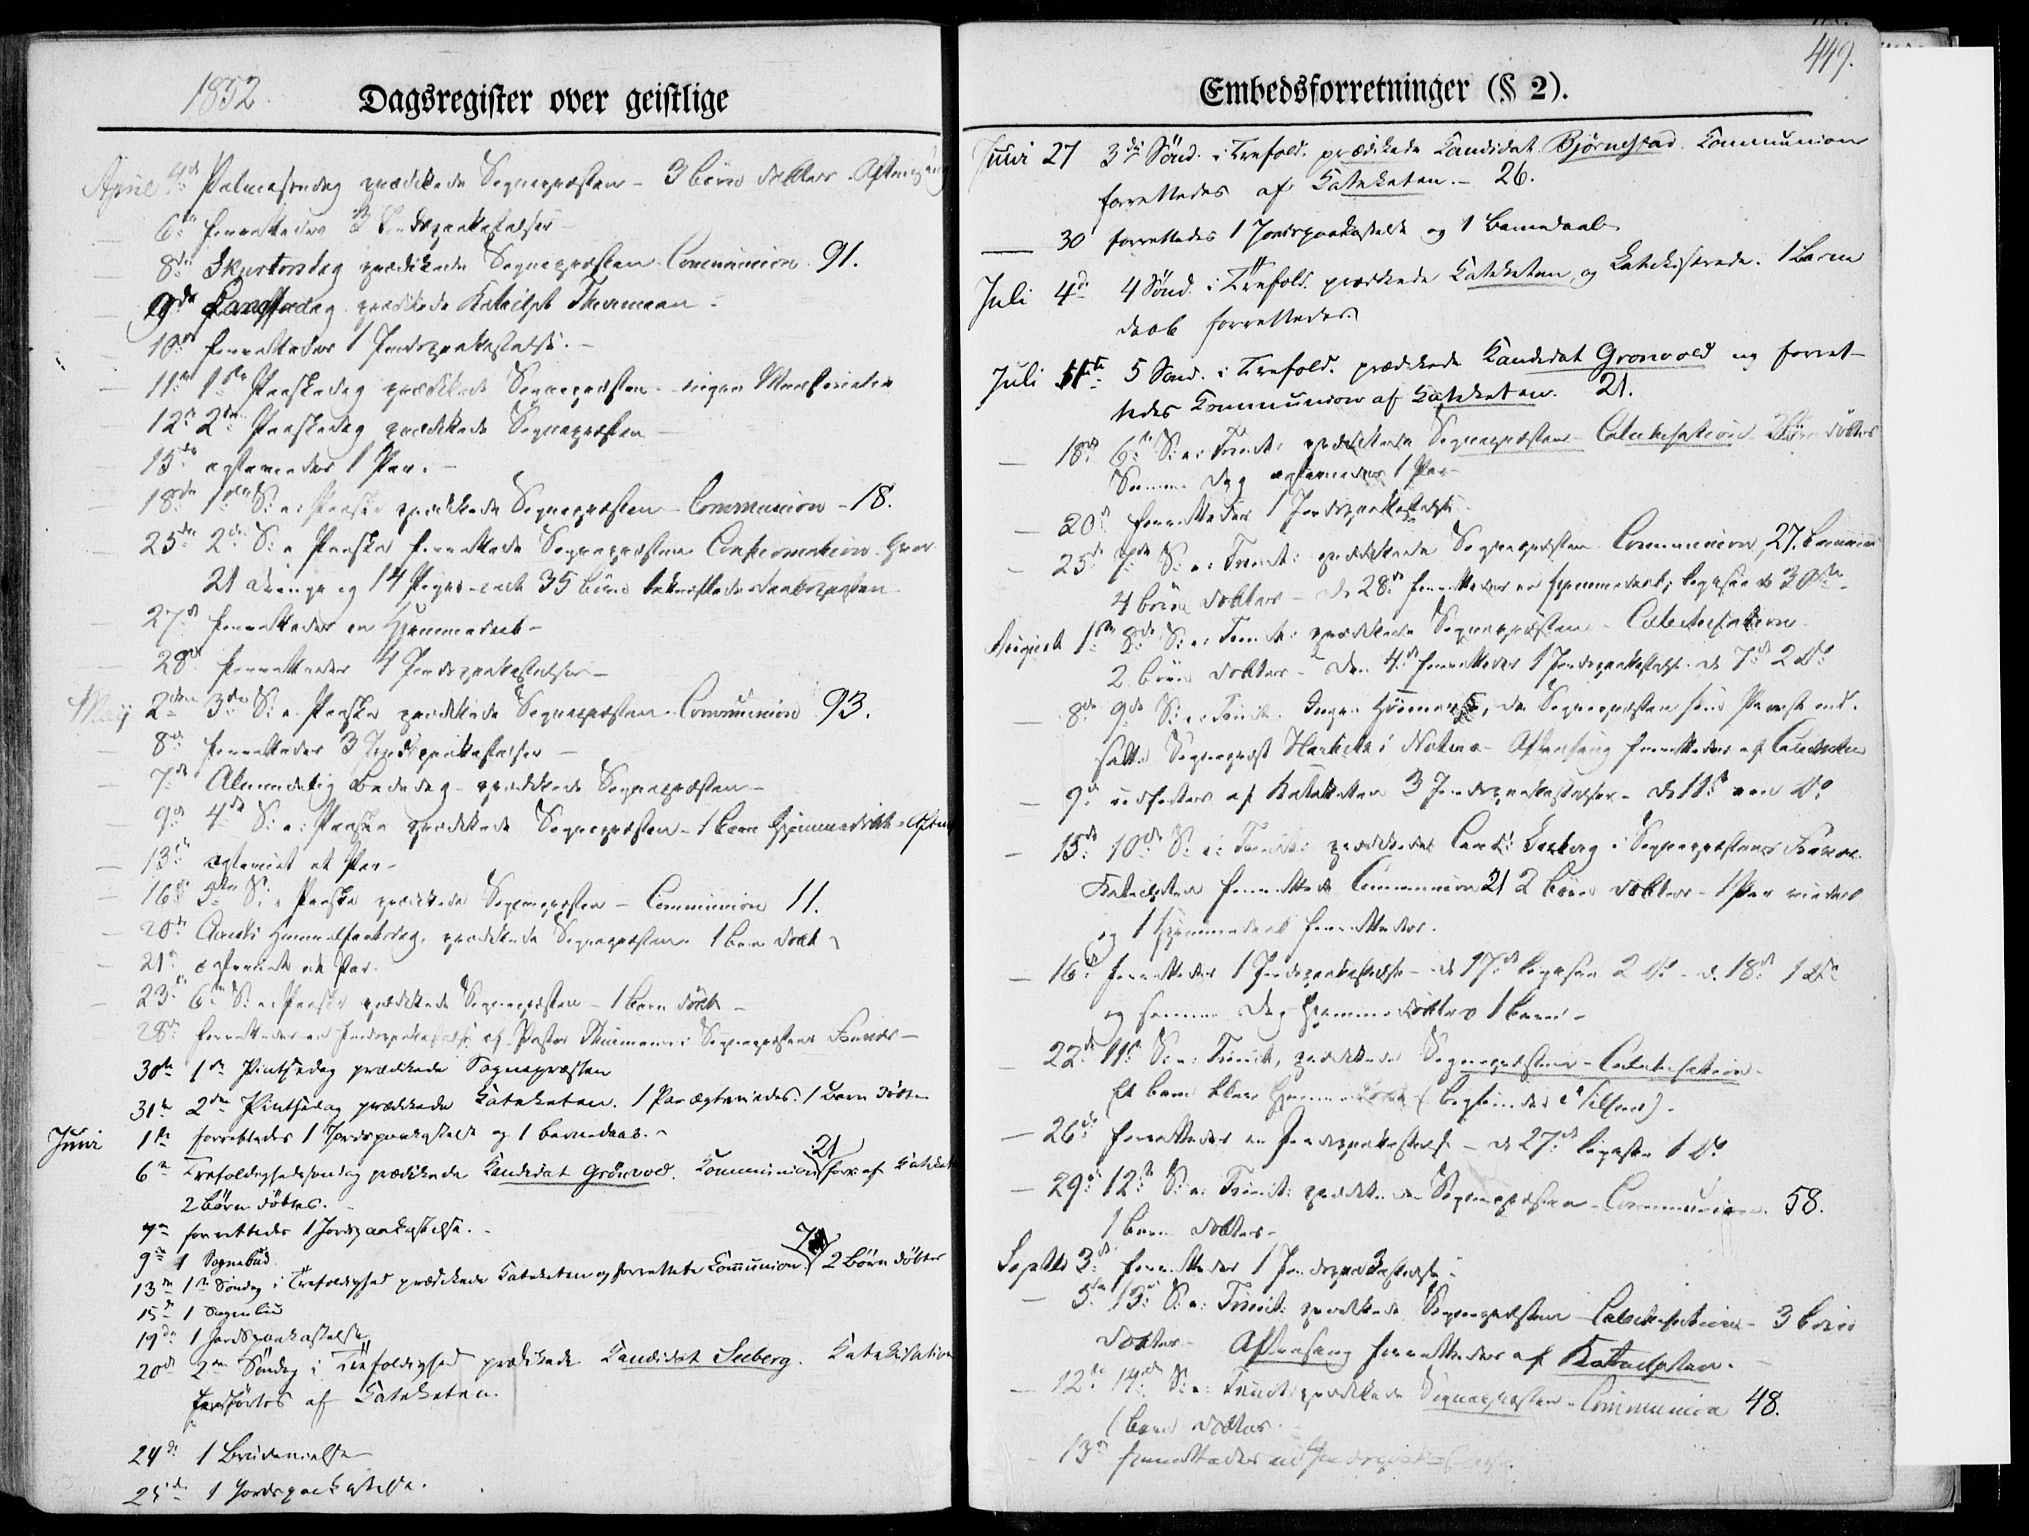 1852.
Dagsregister over geistlige
April 4de Palmesøndag prædikede Sognepræsten - 3 børn døbtes. Aftensang
6te forrettedes 3 Jordspaakastelser
8de Skjertorsdag prædikede Sognepræsten Communion 91.
9de Langfredag prædikede Katechet Thurmann -
10de forrettedes 1 Jordspaakastelse. -
11te 1ste Paaskedag prædikede Sognepræsten - ingen
12te 2den Paaskedag prædikede Sognepræsten -
15de egteviedes 1 Par. -
18de 1ste S: e: Paaske prædikede Sognepræsten - Communion - 18.
25de 2den S: e Paaske forrettede Sognepræsten Confirmation
21 Drenge og 14 Piger - 35 børn
27de forrettedes en Hjemmedaab -
28de forrettedes 4 Jordspaakastelser -
May 2den 3die S: e. Paaske prædikede Sognepræsten - Communion 93.
8de forrettedes 3 Jordspaakastelser -
7de Almindelig Bededag - prædikede Sognepræsten -
9de 4de S: e: Paaske prædikede Sognepræsten - 1 barn
13de egteviet et Par -
16de 5te S: e Paaske prædikede Sognepræsten - Communion 11.
20de Christi Himmelfartsdag, prædikede Sognepræsten. 1 barn døbt
21de egteviet et Par.
23de 6te S: e: Paaske prædikede Sognepræsten - 1 barn døbt -
28de forrettedes en Jordspaakastelse af Pastor Thurmann i Sognepræstens Fravær -
30te 1ste Pintsedag prædikede Sognepræsten
31te 2den Pintsedag prædikede Kateketen. 1 Par ægteviedes. 1 Barn døbt
Juni 1ste forrettedes 1 Jordspaakastelse og 1 barnedaab. -
21
6te Trefoldighedssøndag prædikede Kandidat Grönvold. Kommunion forr. af Kateket
2 Børn döbtes.
7de forrettedes 1 Jordspaakastelse. -
9de 1 Sognebud
13de 1ste Søndag i Trefoldighed prædikede Kateketen og forrettede Communion. 7 2 Børn döbtes
15de 1 Sognebud
19de 1 Jordspaakastelse
20de 2den Söndag i Trefoldighed prædikede Kandidat Seeberg. Katekisation
af Kateketen.
24de 1 Brudevielse
25de 1 Jordspaakastelse.
Embedsforretninger (§ 2).
449.
Juni 27 3die Sönd. i Trefold. prædikede Kandidat Bjørnestad. Kommunion
forrettedes af Kateketen. - 26.
30 forrettedes 1 Jordspaakastelse og 1 Barnedaab.
Juli 4de 4 Sønd. i Trefold. prædikede Kateketen og Katekiserede. 1 Barne
daab forrettedes.
Juli 11te 5 Sönd. i Trefold. prædikede Kandidat Gronvold og forret-
tedes Communion af Kateketen. 21.
18de 6te S: e: Trinit: prædikede Sognepræsten - Catechisation - døbtes
Samme Dag egteviedes 1 Par -
20de forrettedes 1 Jordspaakastelse -
25de 7de S: e: Trinit: prædikede Sognepræsten Communion 27.
4 børn døbtes - d. 28de forrettedes en Hjemmedaab; ligesaa d. 30te -
August 1ste 8de S: e: Trinit: prædikede Sognepræsten - Catechisation -
2 børn døbtes - den 4de forrettedes 1 Jordspaakastelse d. 7de 2 Do
8de 9de S: e: Trinit. Ingen, da Sognepræsten som Provst ind-
satte Sognepræst i - Aftensang forrettedes af Catecheten
9de af Katecheten 3 Jordspaakastelser - d. 11te Do
15de 10de S: e: Trinit: prædikede Cand: Seeberg i Sognepræstens Fravær.
Katecheten forrettede Communion 21 2 børn døbtes - 1 Par viedes
og 1 Hjemmedaab forrettedes.
16de forrettedes 1 Jordspaakastelse - d. 17de ligesaa 2 Do - d. 18de 1 Do
og samme Dag hjemmedøbtes 1 barn -
22de 11te S: e: Trinit, prædikede Sognepræsten - Catechisation -
Et barn blev
26de forrettedes en Jordspaakastelse - d. 27de ligesaa 1 Do
29de 12te S: e: Trinit: prædikede Sognepræsten - Communion. 58.
1 barn døbtes -
Septbr 3de forrettedes 1 Jordspaakastelse -
5te 13de S: e: Trinit: prædikede Sognepræsten - Catechisation - 3 børn
døbtes - Aftensang forrettedes af Katecheten. -
12te 14de S: e: Trinit: prædikede Sognepræsten - Communion 48.
1 barn døbtes.
13de forrettedes en Jordspaakastelse.